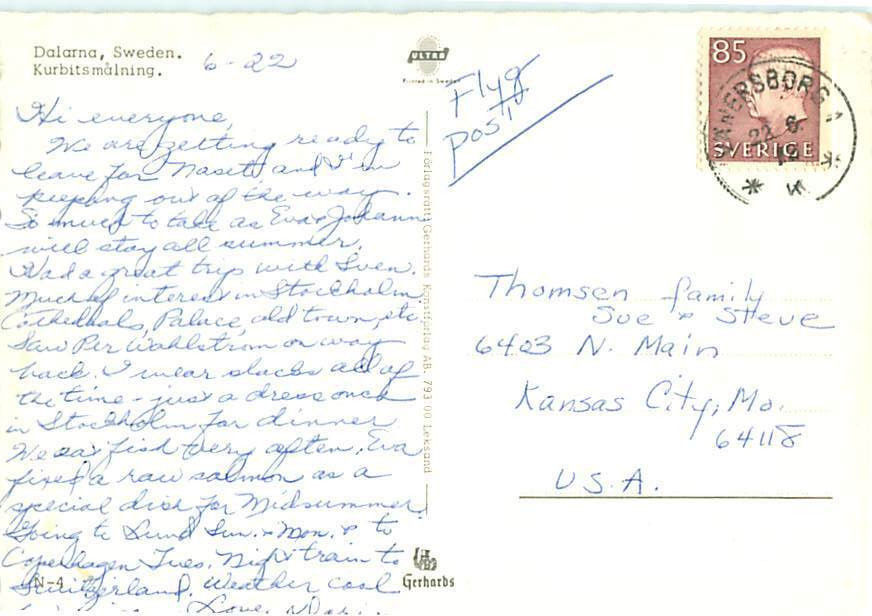 Dalarna, Sweden.
Kurbitsmålning.
6-22
Hi everyone,
We are getting ready to
leave for and I'm
keeping out of the way.
So much to take as Eva & Johann
will stay all summer.
Had a great trip with Sven.
Much of interest in Stockholm
Cathedrals, Palace, old town, etc.
Saw Per Wahlstrom on way
back. I wear slacks all of
the time - just a dress once
in Stockholm for dinner
We eat fish very often. Eva
fixed a raw salmon as a
special dish for Midsummer.
Going to Lund Sun. & Mon. & to
Copenhagen Tues. Night train to
Switzerland. Weather cool
Love,
N-4
ULTRA
Printed in Sweden
Förlagsrätt: Gerhards Konstförlag AB. 793 00 Leksand
Gerhards
Flyg
post
85
SVERIGE
VÄNERSBORG 1
22.6.
Thomsen family
Sue & Steve
6403 N. Main
Kansas City, Mo.
64118
U.S.A.